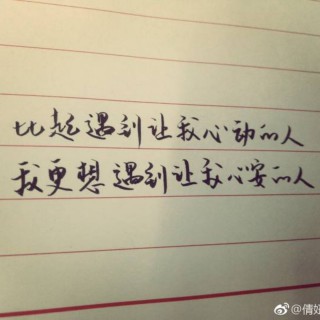 比起遇到让我心动的人
我更想遇到让我心安的人